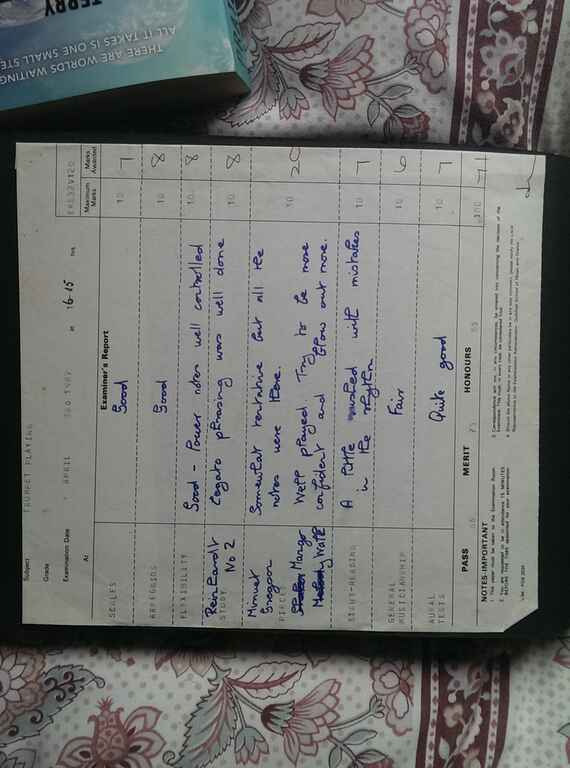 TERRY
THERE ARE WORLDS WAITING
ALL IT TAKES IS ONE SMALL STE
Subject TRUMPET PLAYING
Grade
Examination Date APRIL
At at 16-15 hrs
Examiner's Report Maximum Marks Marks Awarded
SCALES Good 10 7
ARPEGGIOS Good 10 8
FLEXIBILITY Good - Lower notes well controlled 10 8
STUDY No 2 Legato phrasing was well done 10 8
Minuet Somewhat tentative but all the
notes were there.
PIECES Mango Well played. Try to be more 20
Walk confident and blow out more.
SIGHT-READING A little rushed with mistakes 10 7
in the rhythm
GENERAL MUSICIANSHIP Fair 10 6
AURAL TESTS Quite good 10 7
PASS 65 MERIT 75 HONOURS 85 100 71
NOTES:-IMPORTANT